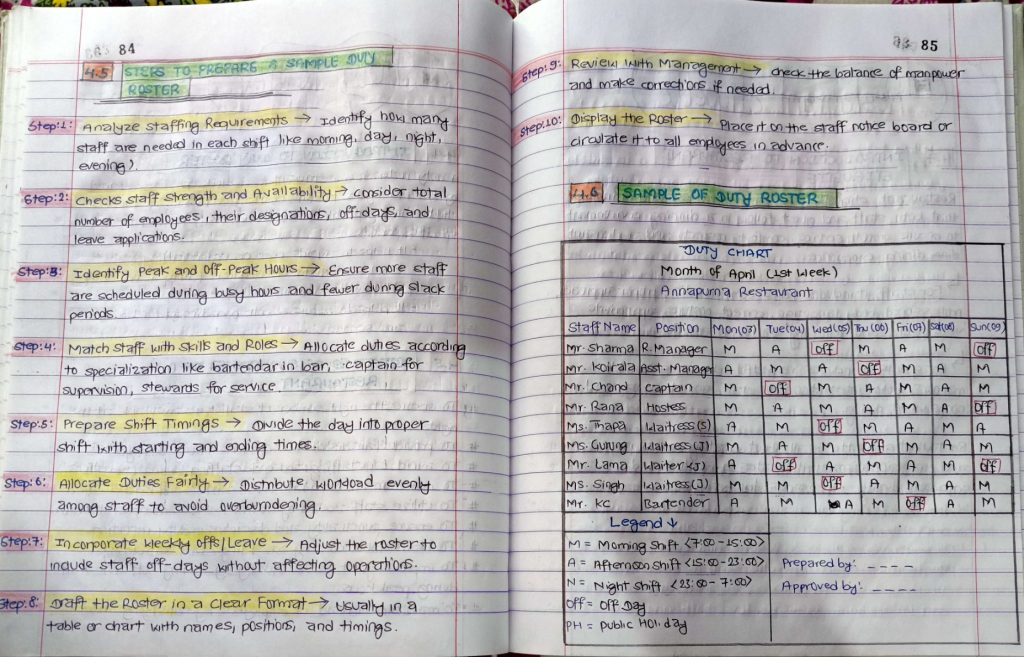 84
4.5 STEPS TO PREPARE A SAMPLE DUTY
ROSTER
Step:1: Analyze Staffing Requirements → Identify how many
staff are needed in each shift like morning, day, night,
evening).
Step:2: Checks staff strength and Availability → consider total
number of employees, their designations, off-days, and
leave applications.
Step:3: Identify Peak and Off-Peak Hours → Ensure more staff
are scheduled during busy hours and fewer during slack
periods.
Step:4: Match Staff with Skills and Roles → Allocate duties according
to specialization like bartendar in bar, captain for
supervision, stewards for service.
Step:5: Prepare Shift Timings → Divide the day into proper
shift with starting and ending times.
Step:6: Allocate Duties Fairly → Distribute workload evenly
among staff to avoid overburndening.
Step:7: Incorporate Weekly offs/Leave → Adjust the roster to
include staff off-days without affecting operations.
Step:8: Draft the Roster in a Clear Format → Usually in a
table or chart with names, positions, and timings.
85
Step:9: Review with Managemat → check the balance of manpower
and make corrections if needed.
Step:10: Display the Roster → Place it on the staff notice board or
circulate it to all employees in advance.
4.6 SAMPLE OF DUTY ROSTER
DUTY CHART
Month of April (1st Week)
Annapurna Restaurant
Staff Name Position Mon(03) Tue(04) Wed(05) Thu(06) Fri(07) Sat(08) Sun(09)
Mr. Sharma R.Manager M A Off M A M Off
Mr. Koirala Asst. Manager A M A Off M A M
Mr. Chand Captain M Off M A M A M
Mr. Rana Hostes M A M A M A Off
Ms. Thapa Waitress(S) A M Off M A M A
Ms. Gurung Waitress(J) M A M Off M A M
Mr. Lama Waiter(J) A Off A M A M Off
Ms. Singh Waitress(J) M M Off A M A M
Mr. KC Bartender A M A M Off A M
Legend ↓
M = Morning Shift (7:00 - 15:00)
A = Afternoon Shift (15:00 - 23:00) Prepared by: ----
N = Night shift (23:00 - 7:00) Approved by: ----
Off = Off Day
PH = Public Holiday